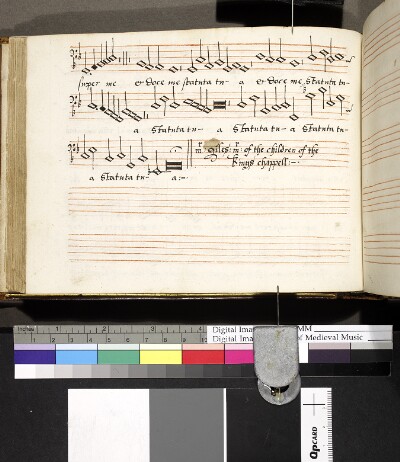 super me et doce me statuta tu- a et doce me, Statuta tu-
a Statuta tu- a Statuta tu- a Statuta tu-
a Statuta tu- a:-
mr giles: mr of the children of the
kings chappell:-
inches 1 2
Digital Ima MM
Digital Ima of Medieval Music
QPCARD